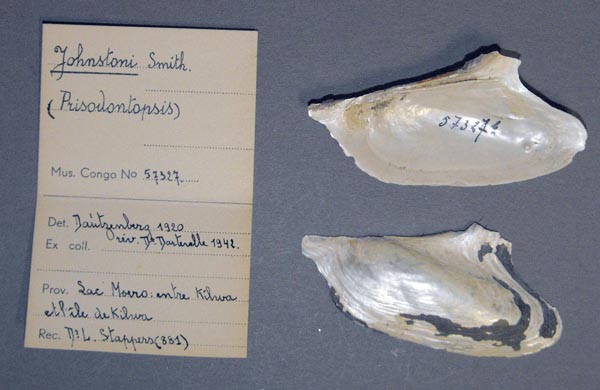 Johnstoni Smith.
(Prisodontopsis)
Mus. Congo No 57327.
Det. Dautzenberg 1920
Ex coll. rév. Dr Darteville 1942.
Prov. Lac Moero: entre Kilwa
et l'île de Kilwa
Rec. Dr L. Stappers (881)
57327